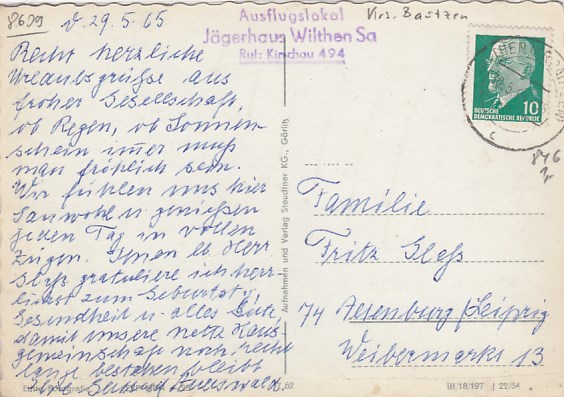 8699
d. 29.5.65
Recht herzliche
Urlaubsgrüße aus
froher Gesellschaft,
ob Regen, ob Sonnen-
schein immer muß
man fröhlich sein.
Wir fühlen uns hier
sauwohl u. genießen
jeden Tag in vollen
Zügen. Ihnen lb. Herr
Gleß gratuliere ich herz-
lichst zum Geburtstag,
Gesundheit u. alles Gute,
damit unsere nette Haus-
gemeinschaft noch recht
lange bestehen bleibt
Ausflugslokal
Jägerhaus Wilthen Sa
Ruf: Kirschau 494
Krs. Bautzen
DEUTSCHE
DEMOKRATISCHE REPUBLIK
10
846
Aufnahmen und Verlag Steudtner KG., Görlitz
Familie
Fritz Gleß
74 Altenburg/Leipzig
Weibermarkt 13
III/18/197 J 22/64